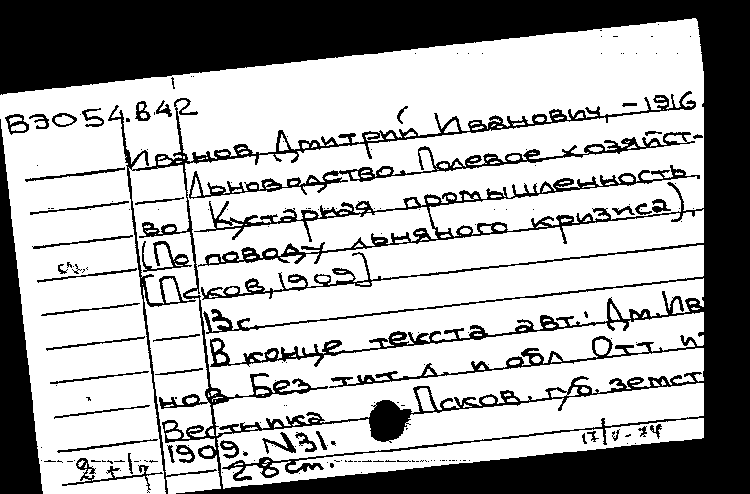 В3054.В42
Иванов, Дмитрий Иванович, -1916.
Льноводство. Полевое хозяйст-
во. Кустарная промышленность.
(По поводу льняного кризиса).
[Псков, 1909].
13с.
В конце текста авт.: Дм. Ива
нов. Без тит. л. и обл. Отт. из
Вестника Псков. губ. земст
1909. N31.
28cm.